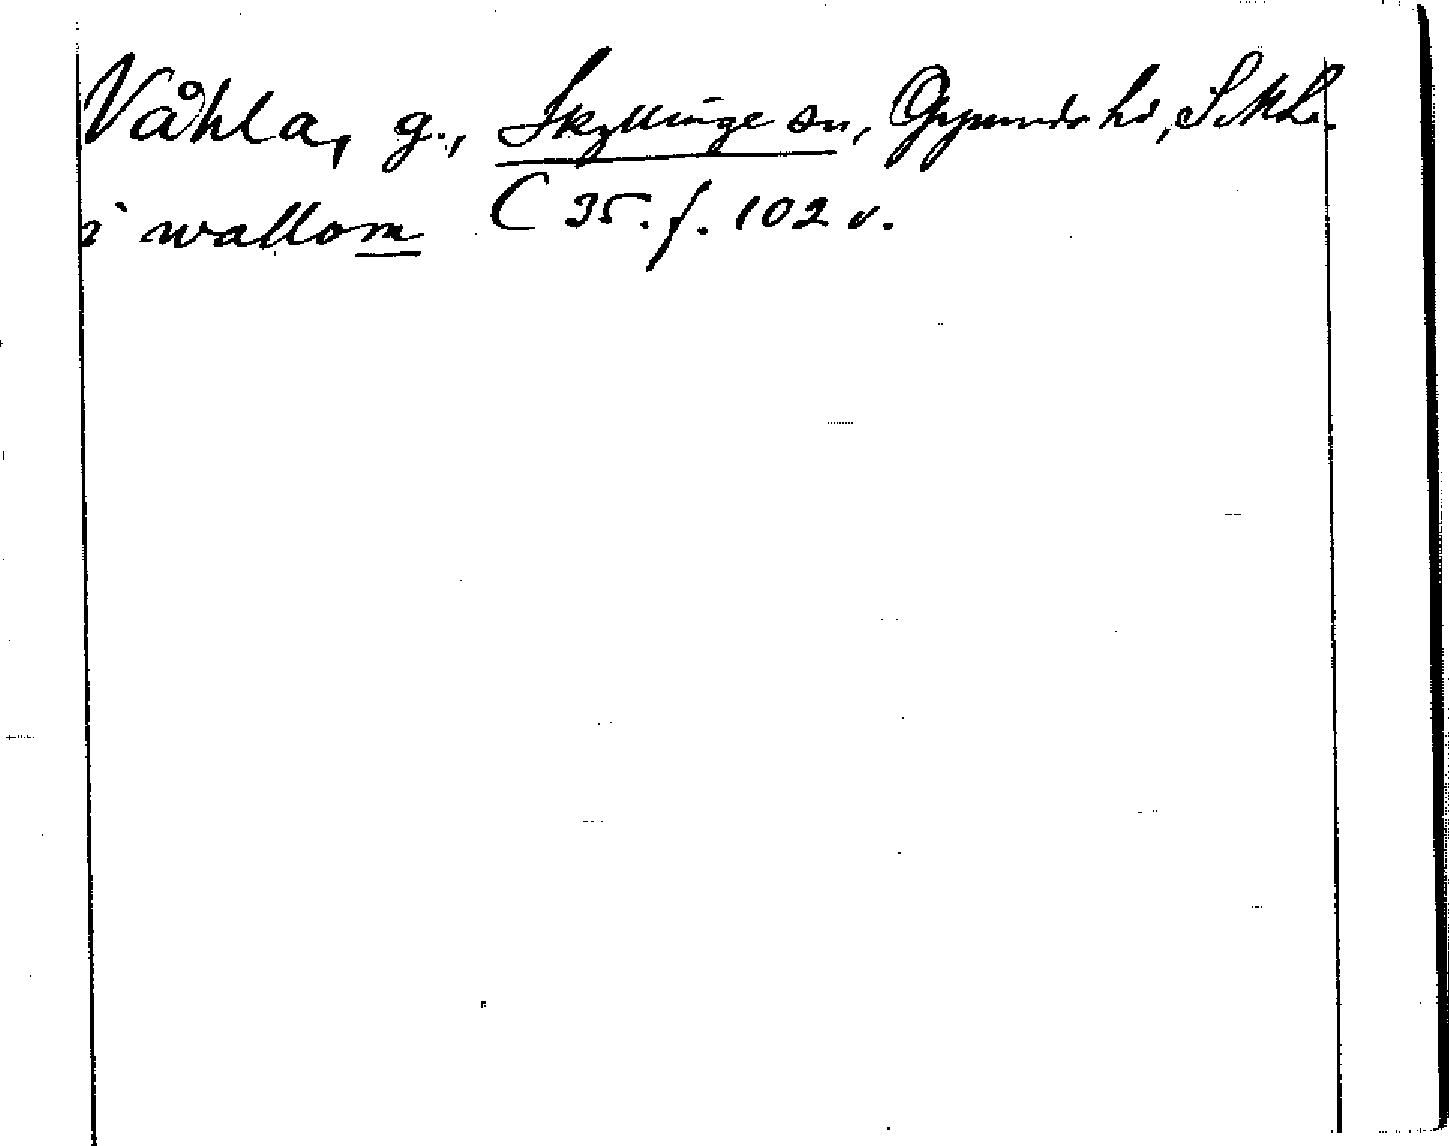 Våhla, g., Skyllinge sn, Oppunda hd, Södl.
i wallom C 35. f. 102 v.